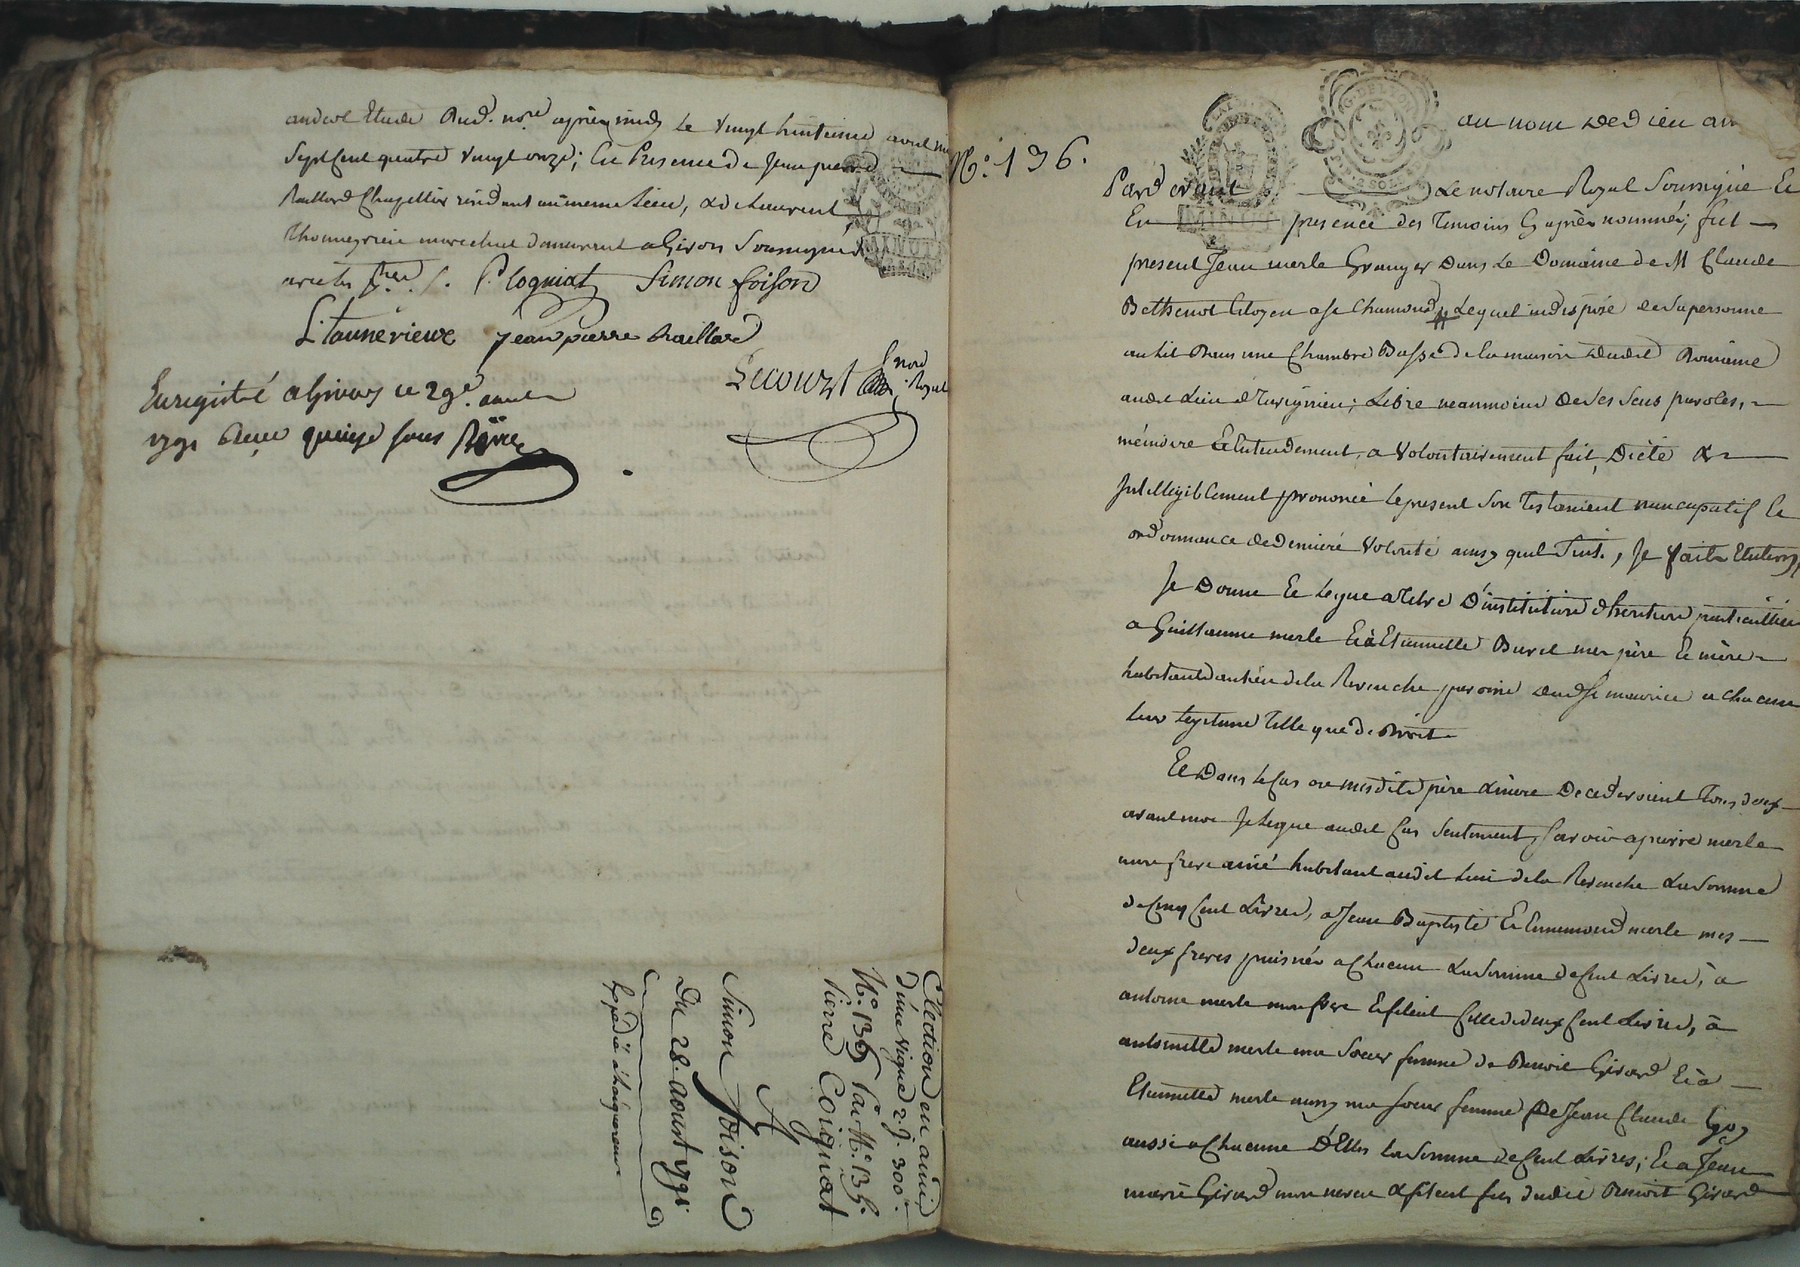 audit Etude Aud. nore après midy le vingt huitieme avril mil
Sept Cent quatre vingt onze; En Presence de Jean pierre
Raillard Chapellier résidant au meme Lieu, & de Laurent
Thonnerieu marechal demeurant a Givors Soussignés
avec les
P. Cogniat Simon foison
L. tonnerieux Jean pierre Raillard
Lecourt nore Royal
Enregistré a Givors le 29e. avril
1791 Reçu quinze sous
Election en amie
D'une vigne 2.J. 300.#
No. 135 Par Me. 135.
Pierre Coignat
A
Simon foison
Du 28 aoust 1791
Expédié à l'acquereur
No. 136.
au nom de Dieu am
Pardevant Le notaire Royal Soussigné Et
En presence des Temoins Cy après nommés; fut
present Jean merle Granger Dans Le Domaine de M Claude
Bethenot Citoyen a St Chamond, Lequel indisposé de Sa personne
au Lit Dans une Chambre Basse de la maison dudit Domaine
audit Lieu ; Libre neanmoins De Ses Sens, paroles,
mémoire & Entendement, a volontairement fait, Dicté &
Intelligiblement prononcé le present Son Testament nuncupatif Et
ordonnance de derniere volonté ainsy quil Suit., Je
Je Donne Et Legue a Titre D'institution d'heritiere particulliere
a Guillaume merle Et à Etiennette Burel mes père Et mère
habitants au Lieu de la Revenche paroisse dud St maurice a chacun
leur Legitime Telle que de Droit
Et Dans le Cas ou mesdits père & mère Decederoient Tous deux
avant moi Je Legue audit Cas Seulement, Savoir a pierre merle
mon frere ainé habitant audit Lieu de la Revenche La Somme
de Cinq Cent Livres, a Jean Baptiste Et Ennemond merle mes
deux freres puisnés a Chacun La Somme de Cent Livres, à
antoine merle mon frere Et filleul Celle de deux Cent Livres, à
antoinette merle ma Soeur femme de Benoit Girard Et à
Etiennette merle aussy ma soeur femme De Jean Claude
aussi a Chacune D'Elles La Somme de Cent Livres; Et a Jean
marie Girard mon neveu & filleul fils dudit Benoit Girard